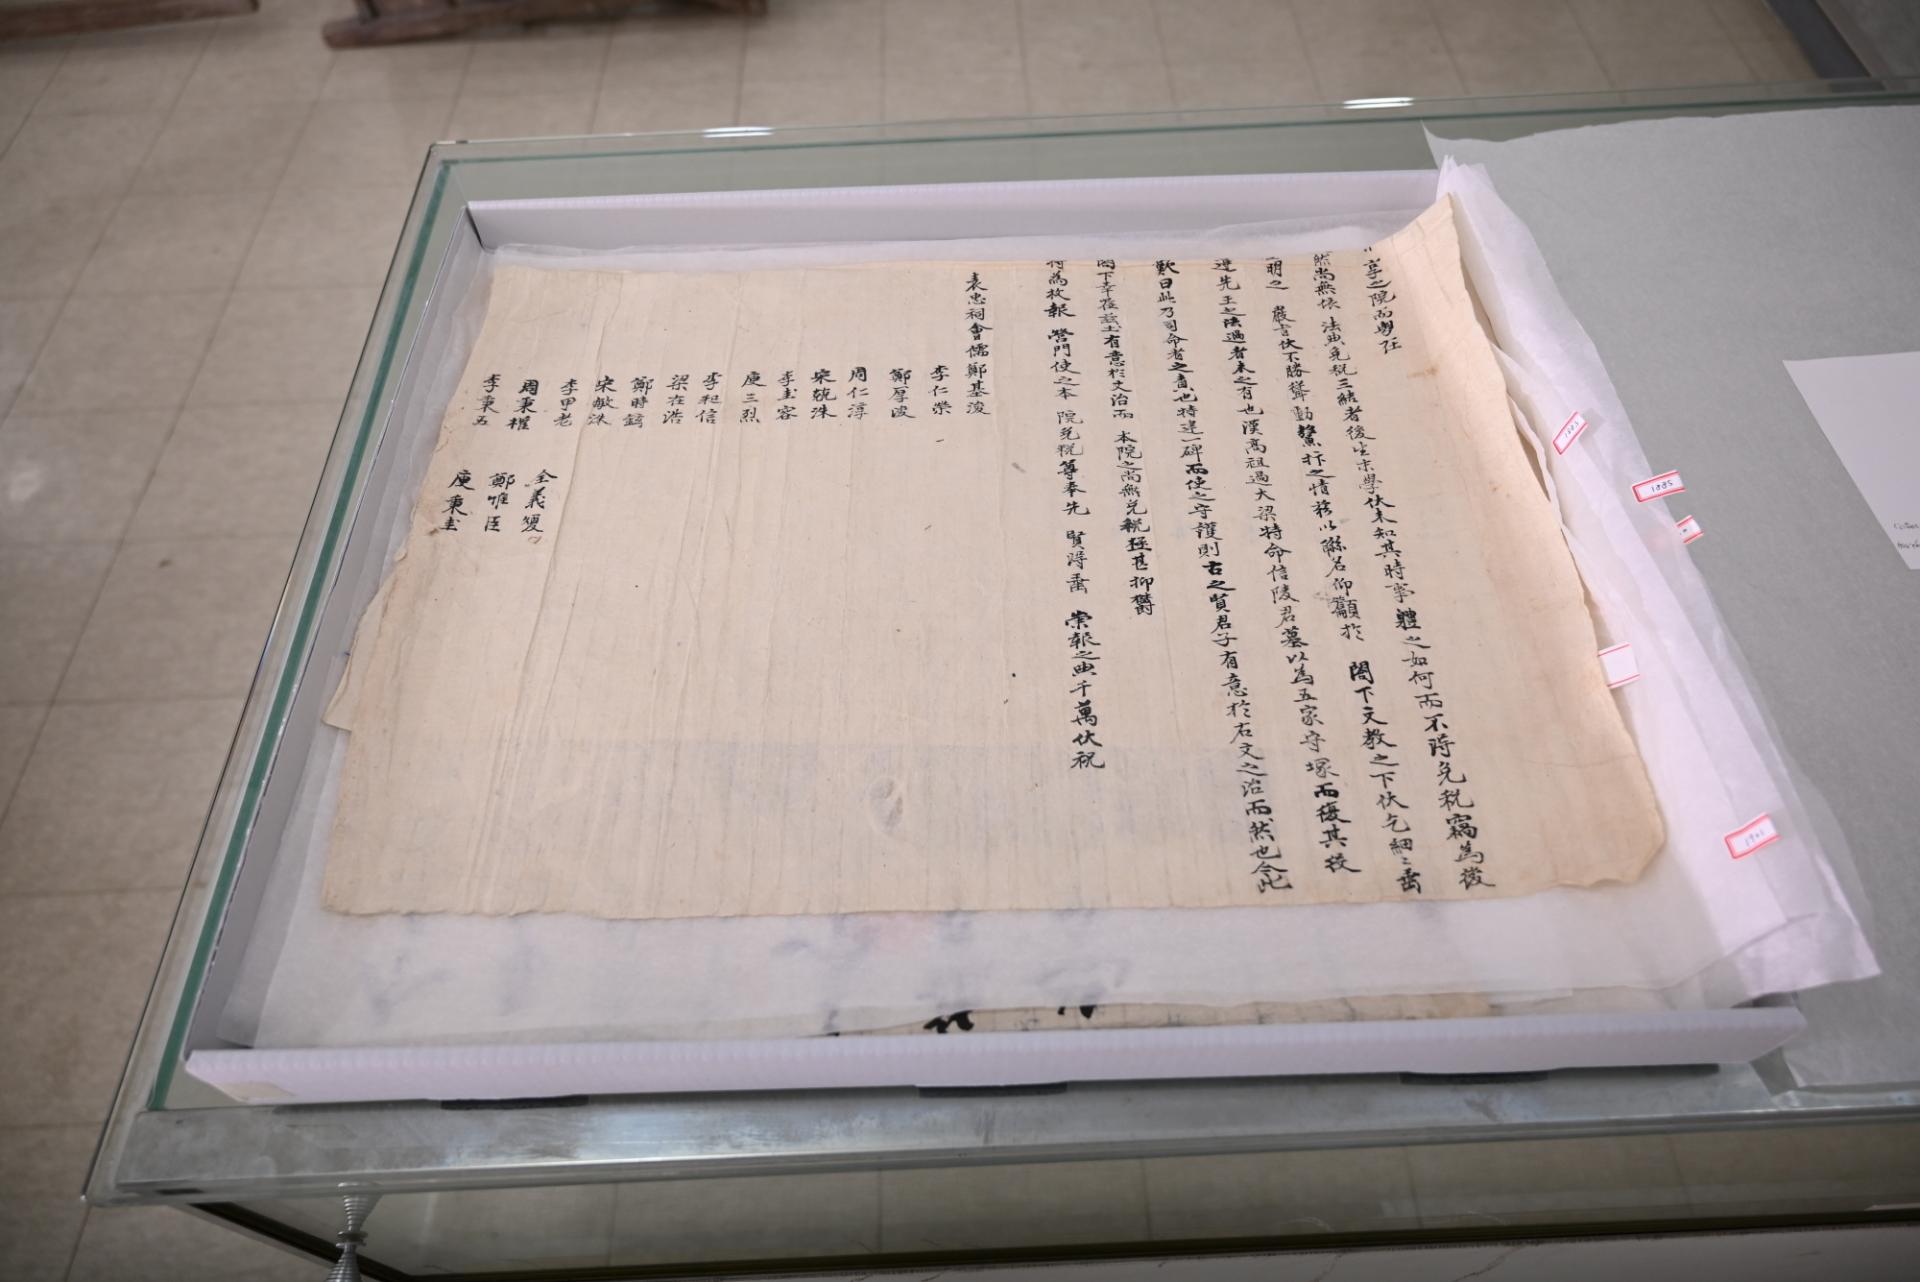 享之院而學任
然尚無依 法典免稅三結者後生末學伏未知其時事體之如何而不得免稅竊爲後
明之 嚴吉伏不勝聳動鰲抃之情務以聯名仰籲於 閤下文敎之下伏乞細二垂
遵先王之法過者未之有也漢高祖過大梁特命信陵君墓以爲五家守塚而復其後
歎曰此乃司命者之責也特建一碑而使之守護則古之賢君子有意於右文之治而然也今此
閤下幸莅玆土有意於文治而 本院之尚無免稅極甚抑欝
特爲枚報 營門使之本 院免稅等奉先 賢將垂 崇報之典千萬伏祝
表忠祠會儒鄭基浚
李仁榮
鄭厚浚
周仁淳
宋兢洙
李圭容
庾三烈
李昶信
梁在浩
鄭時鎬
宋敏洙
李甲老
全義燮
周秉權
鄭惟臣
李秉五
庾秉圭
1885
1885
1901